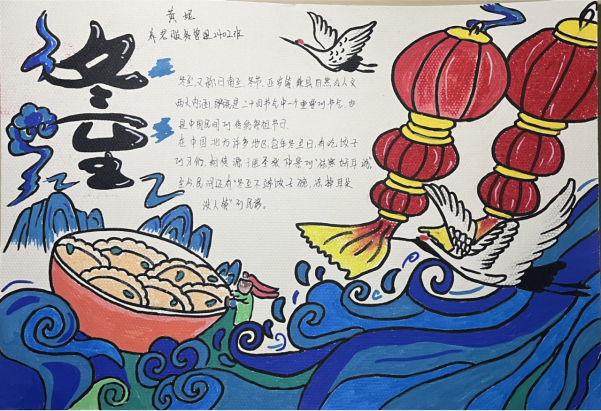 黄媛
养老服务管理2402班
冬至
冬至又称日南至、冬节、亚岁等,兼具自然与人文
两大内涵,既是二十四节气中一个重要的节气,也
是中国民间的传统祭祖节日.
在中国北方许多地区,每年冬至日,有吃饺子
的习俗,
至今民间还有"冬至不端饺子碗,冻掉耳朵
没人管"的民谣.